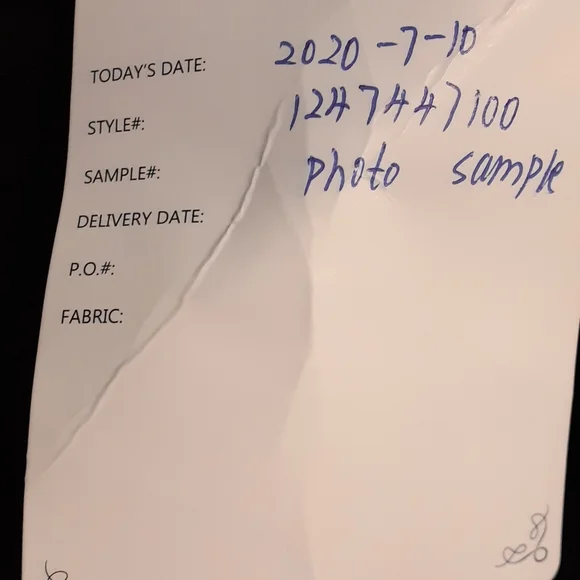 TODAY'S DATE: 2020-7-10
STYLE#: 1247447100
SAMPLE#: photo sample
DELIVERY DATE:
P.O.#:
FABRIC: